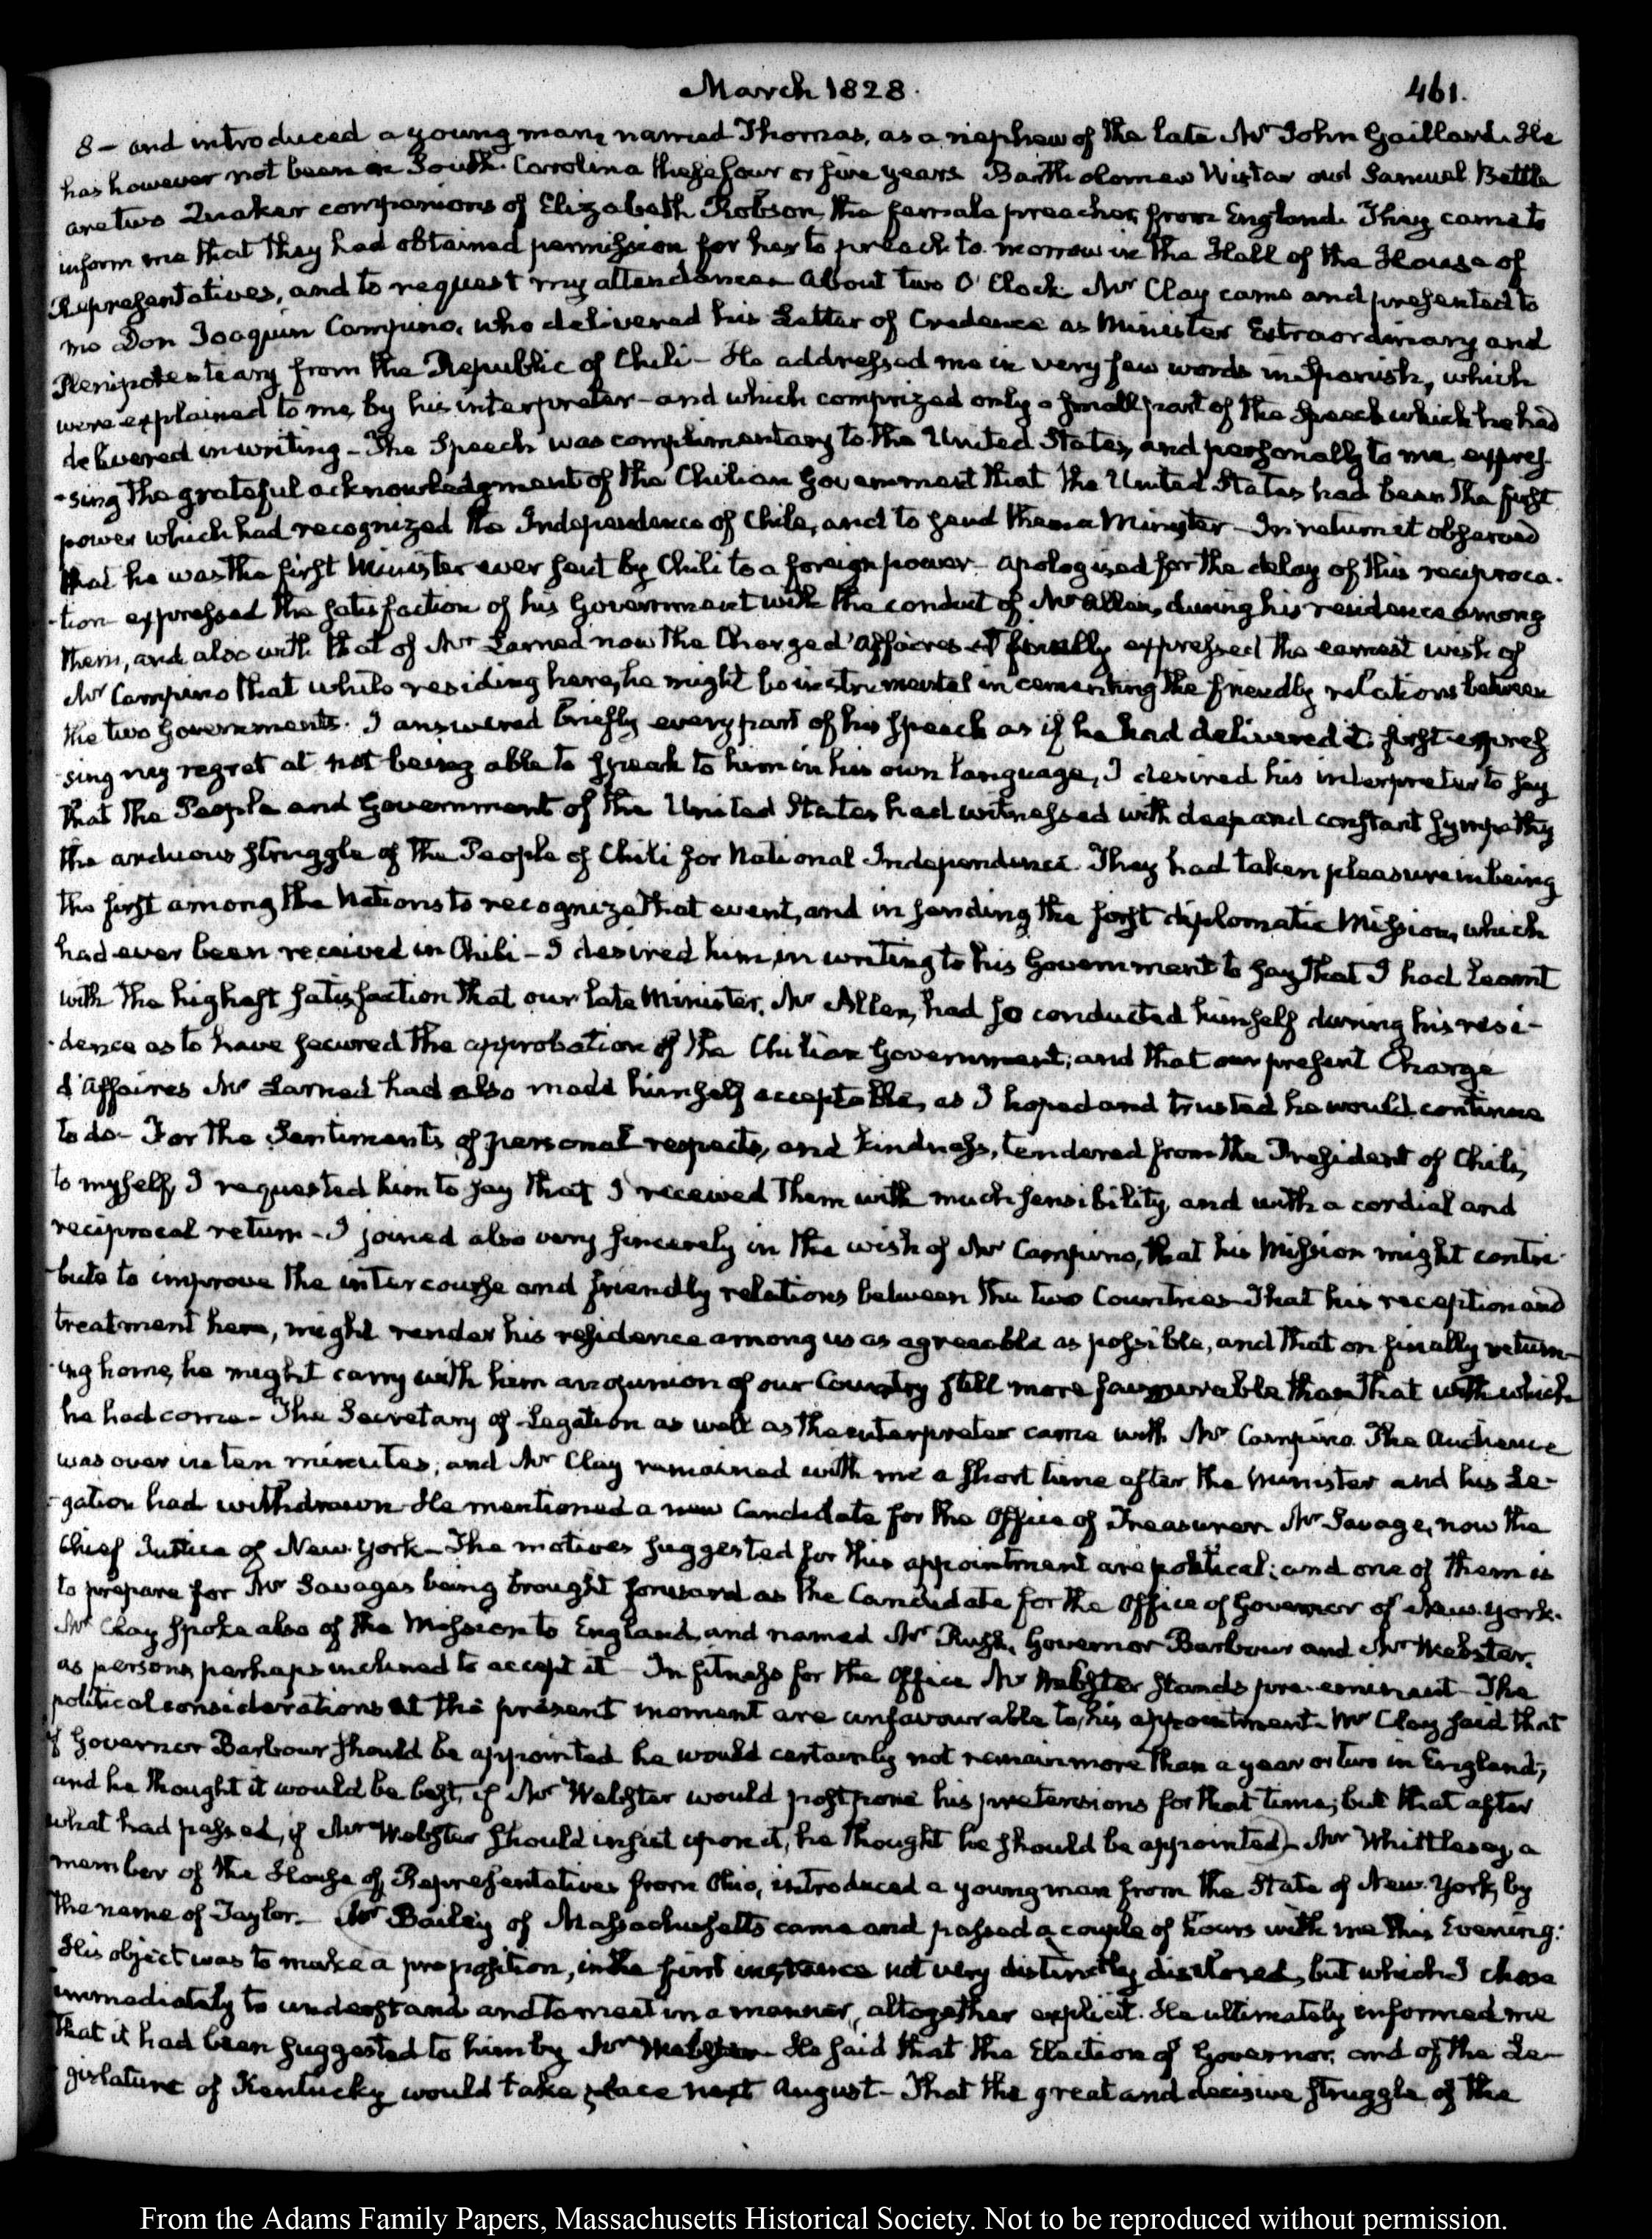 March 1828.
461.
8 — and introduced a young man, named Thomas, as a nephew of the late Mr John Gaillard. He
has however not been in South Carolina these four or five years. Bartholomew Wistar and Samuel Bettle
are two Quaker companions of Elizabeth Robson, the female preacher, from England. They came to
inform me that they had obtained permission for her to preach to-morrow in the Hall of the House of
Representatives, and to request my attendance. About two O'Clock Mr Clay came and presented to
me Don Joaquin Campino, who delivered his Letter of Credence as Minister Extraordinary and
Plenipotentiary from the Republic of Chili — He addressed me in very few words in Spanish, which
were explained to me, by his interpreter — and which comprized only a small part of the Speech which he had
delivered in writing — The Speech was complimentary to the United States, and personally to me, expres-
-sing the grateful acknowledgment of the Chilian Government that the United States had been the first
power which had recognized the Independence of Chile, and to send them a Minister — In return it observed
that he was the first Minister ever sent by Chili to a foreign power — apologized for the delay of this reciproca-
-tion — expressed the satisfaction of his Government with the conduct of Mr Allen, during his residence among
them, and also with that of Mr Larned now the Chargé d'Affaires — It finally expressed the earnest wish of
Mr Campino that while residing here, he might be instrumental in cementing the friendly relations between
the two Governments. I answered briefly every part of his speech as if he had delivered it. first expres-
-sing my regret at not being able to speak to him in his own language, I desired his interpreter to say
that the People and Government of the United States had witnessed with deep and constant sympathy
the arduous struggle of the People of Chili for National Independence. They had taken pleasure in being
the first among the Nations to recognize that event, and in sending the first diplomatic Mission, which
had ever been received in Chili — I desired him, in writing to his Government to say that I had learnt
with the highest satisfaction that our late Minister, Mr Allen, had so conducted himself during his resi-
-dence as to have secured the approbation of the Chilian Government; and that our present Chargé
d'Affaires Mr Larned had also made himself acceptable, as I hoped and trusted he would continue
to do — For the Sentiments of personal respects, and kindness, tendered from the President of Chili,
to myself, I requested him to say that I received them with much sensibility, and with a cordial and
reciprocal return — I joined also very sincerely in the wish of Mr Campino, that his Mission might contri-
-bute to improve the intercourse and friendly relations between the two Countries — That his reception and
treatment here, might render his residence among us as agreeable as possible, and that on finally return-
-ing home, he might carry with him an opinion of our Country still more favourable than that with which
he had come — The Secretary of Legation as well as the interpreter came with Mr Campino. The Audience
was over in ten minutes; and Mr Clay remained with me a short time after the Minister and his Le-
-gation had withdrawn. He mentioned a new Candidate for the Office of Treasurer. Mr Savage, now the
Chief Justice of New York — The motives suggested for this appointment are political; and one of them is
to prepare for Mr Savage's being brought forward as the Candidate for the Office of Governor of New-York.
Mr Clay spoke also of the Mission to England, and named Mr Rush, Governor Barbour and Mr Webster,
as persons, perhaps inclined to accept it — In fitness for the Office Mr Webster stands pre-eminent — The
political considerations at the present moment are unfavourable to his appointment. Mr Clay said that
if Governor Barbour should be appointed he would certainly not remain more than a year or two in England;
and he thought it would be best, if Mr Webster would postpone his pretensions for that time; but that after
what had passed, if Mr Webster should insist upon it, he thought he should be appointed) — Mr Whittlesey, a
member of the House of Representatives from Ohio, introduced a young man from the State of New-York, by
the name of Taylor — (Mr Bailey of Massachusetts came and passed a couple of hours with me this Evening:
His object was to make a proposition, in the first instance not very distinctly disclosed, but which I chose
immediately to understand and to meet in a manner, altogether explicit. He ultimately informed me
that it had been suggested to him by Mr Webster. He said that the Election of Governor, and of the Le-
gislature of Kentucky would take place next August — That the great and decisive struggle of the
From the Adams Family Papers, Massachusetts Historical Society. Not to be reproduced without permission.